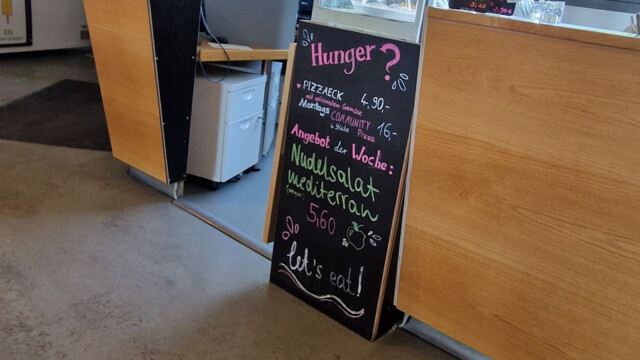 Hunger?
PIZZAECK 4,90,-
mit saisonalem Gemüse
Montags COMMUNITY 16,-
Pizza
Angebot der Woche:
Nudelsalat
mediterran
5,60
let's eat!